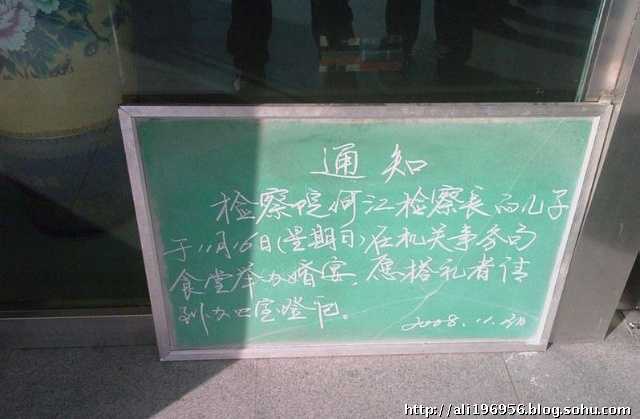 通知
检察院何江检察长的儿子
于11月16日(星期日)在机关事务局
食堂举办婚宴、愿搭礼者请
到办公室登记。
2008.11.3日
http://ali196956.blog.sohu.com